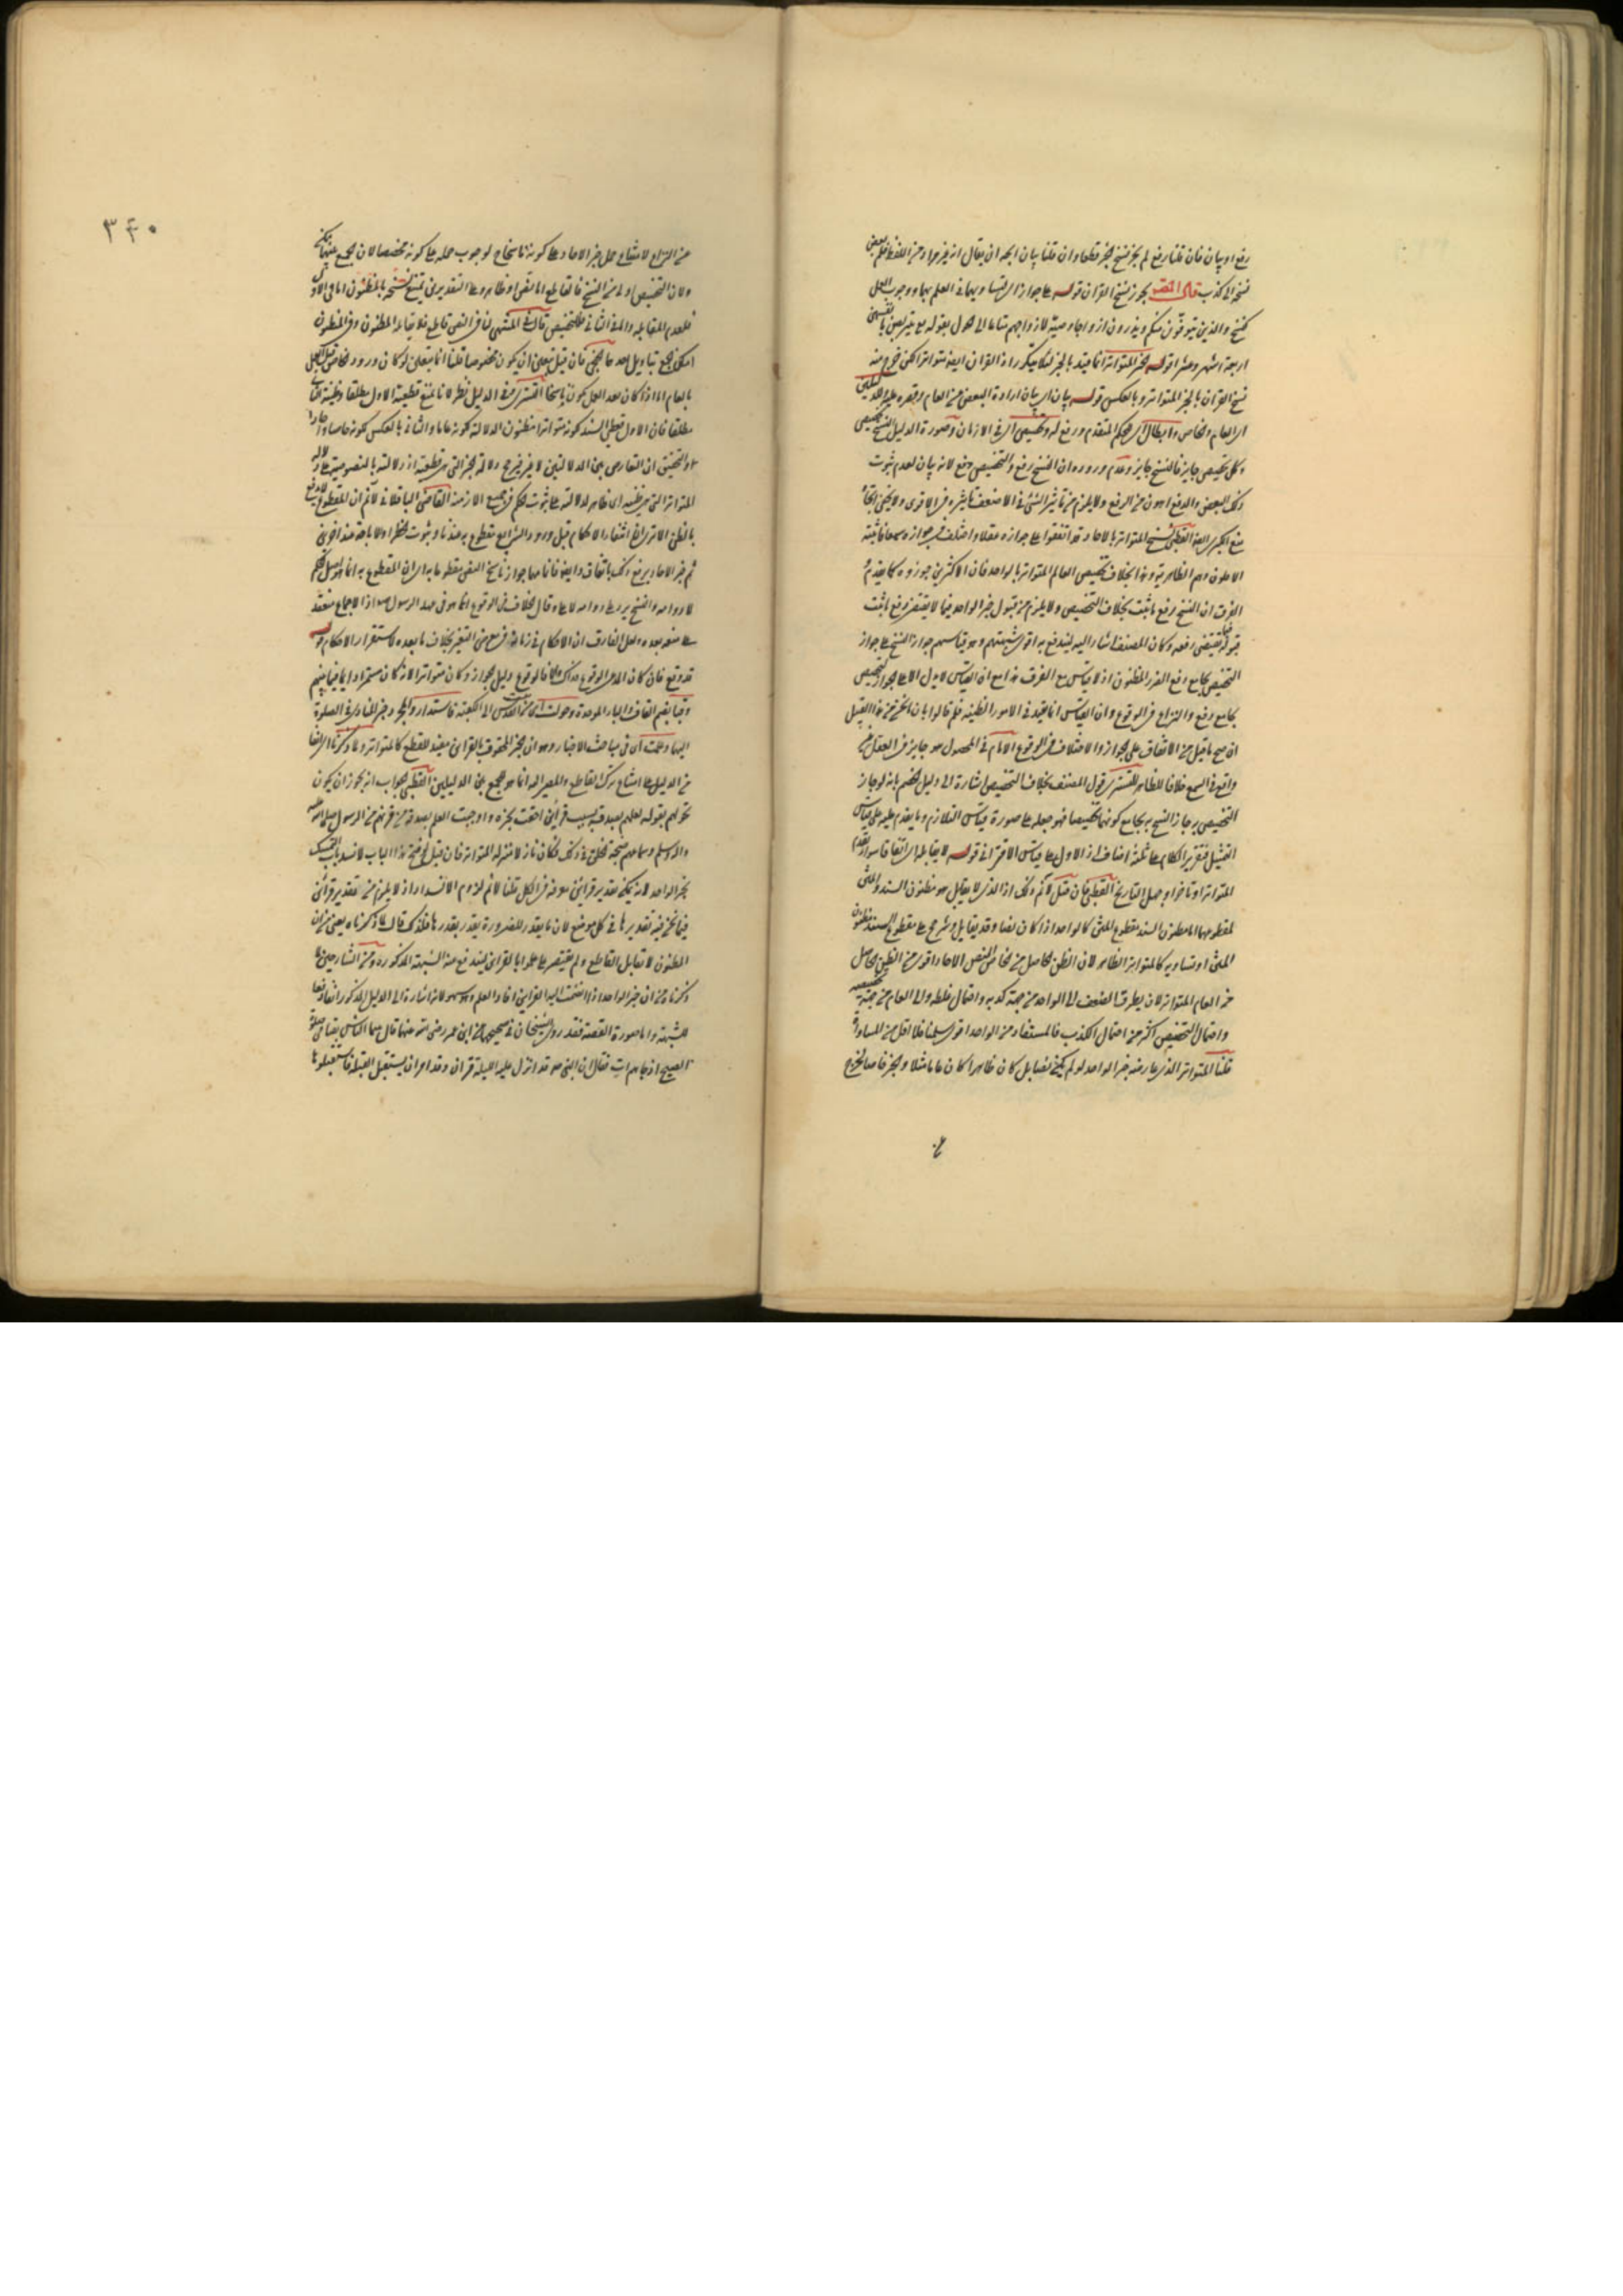 رفع او بيان فان قلنا رفع لم يجز نسخ الخبر قطعا وان قلنا بيان اتجه ان يقال انه غير مراد من اللفظ فلم يفض
نسخه الى كذب قال المصنف يجوز نسخ القران قوله على جواز لتساويهما في العلم بهما ووجوب العمل
كنسخ والذين يتوفون منكم ويذرون ازواجا وصية لازواجهم متاعا الى الحول بقوله يتربصن بانفسهن
اربعة اشهر وعشرا قوله الخبر المتواتر انما قيد بالخبر لئلا يتكرر اذ القران ايضا متواتر لكن خرج منه
نسخ القران بالخبر المتواتر وبالعكس قوله بيان اي بيان ارادة البعض من العام وقصره عليه للدليلين
اي العام والخاص وابطال اي للحكم المتقدم ورفع له وتخصيص اي في الازمان وصورة الدليل النسخ تخصيص
وكل تخصيص جايز فالنسخ جايز وعدم وروده ان النسخ رفع والتخصيص دفع لانه بيان لعدم ثبوت
ذلك البعض والدفع اهون من الرفع ولا يلزم من تاثير الشئ في الاضعف تاثيره في الاقوى
منع الكبرى القطبي نسخ المتواتر بالاحاد قد اتفقوا على جوازه عقلا واختلف في جوازه سمعا فاثبته
الاقلون وهم الظاهرية وهذا بخلاف تخصيص العام المتواتر بالواحد فان الاكثرين جوزوه كما تقدم
الفرق ان النسخ رفع ما ثبت بخلاف التخصيص ولا يلزم من قبول خبر الواحد فيما لا يقتضي رفع ما ثبت
قبوله فيما يقتضي رفعه وكان المصنف اشار اليه ليندفع به اقوى شبهتهم وهو قياسهم جواز النسخ على جواز
التخصيص بجامع دفع الضرر المظنون اذ لا قياس مع الفرق هذا مع ان القياس لا يدل الا على جواز التخصيص
بجامع رفع والنزاع في الوقوع وان القياس انما يفيد في الامور الظنية
ان صح ما قيل من الاتفاق على الجواز والاختلاف في الوقوع الامام في المحصول هو جايز في العقل غير
واقع في السمع خلافا للظاهر التستري قول المصنف بخلاف التخصيص اشارة الى دليل الخصم بانه لو جاز
التخصيص به جاز النسخ به بجامع كونهما تخصيصا فهو جعله على صورة قياس التلازم وما يقدم عليه على قياس
التمثيل قوله لا يقابله
المتواتر او تاخر او جهل التاريخ القطبي فان قيل لا نم ذلك اذ الذي لا يقابل هو مظنون السند والمتن
لمقطوعهما اما مظنون السند مقطوع المتن كالواحد اذا كان نصا وقد يقابل ويترجح على مقطوع السند مظنون
المتن او تساويه كالمتواتر الظاهر لان الظن الحاصل من الخاص النص الاحاد اقوى من الظن الحاصل
من العام المتواتر لان يطرق الضعف الى الواحد من جهة كذبه واحتمال غلطه والى العام من جهة تخصيصه
واحتمال التخصيص اكثر من احتمال الكذب فالمستفاد من الواحد اقوى سلمنا فلا اقل من المساواة
قلنا المتواتر الذي عارضه خبر الواحد لو لم يكن نصا بل كان ظاهرا كان عاما مثلا والخبر خاصا لخرج
عن
٣٤٠
عن النزاع لامتناع حمل خبر الاحاد على كونه ناسخا ح لوجوب حمله على كونه مخصصا لان الجمع بينهما ممكن
ولان التخصيص اولى من النسخ فالقاطع اما نص او ظاهر وعلى التقديرين يمتنع نسخه بالمظنون اما في الاول
فلعدم المقابلة واما في الثاني فللتخصيص قال في المنتهى لنا في النص قاطع فلا يقابله المظنون وفي المظنون
امكن الجمع بتاويل احدهما الخنجي فان قيل يتعين ان يكون مخصوصا قلنا انما يتعين لو كان ورود الخاص قبل العمل
بالعام اما اذا كان بعد العمل يكون ناسخا التستري في الدليل نظر لانا نمنع قطعية الاول مطلقا وظنية الثاني
مطلقا فان الاول قطعي السند كونه متواترا مظنون الدلالة كونه عاما والثاني بالعكس كونه خاصا واحدا
والتحقيق ان التعارض بين الدلالتين لا غير فيرجح دلالة الخبر التي هي قطعية اذ دلالته بالخصوصية على دلالة
المتواتر التي هي ظنية اي ظاهر لدلالته على ثبوت الحكم في جميع الازمنة القاضي الباقلاني لا نم ان المقطوع لا يدفع
بالظن الا ترى ان انتفاء الاحكام قبل ورود الشرايع مقطوع به عندنا وثبوت الحظر او الاباحة عند اخرين
ثم خبر الاحاد يرفع ذلك باتفاق وايضا فانا
لا دوامه والنسخ يرد على دوامه لا عليه وقال الخلاف في الوقوع انما هو في عهد الرسول صلعم اذ الاجماع منعقد
على منعه بعده ولعل الفارق ان الاحكام في زمانه في معرض التغير بخلاف ما بعده لاستقرار الاحكام قوله
قد وقع فان كان المدعى الوقوع فذاك والا فالوقوع دليل الجواز وكان متواترا لانه كان مستمرا دائما فيما بينهم
وقبا بضم القاف والباء الموحدة وحولت اي من بيت القدس الى الكعبة فاستدار والخبر هو خبر المنادي في الصلوة
اليها وعلمت اي في مباحث الاخبار وهو ان الخبر المحفوف بالقراين مفيد للقطع كالمتواتر ولما ذكرنا اي انفا
من الدليل على امتناع ترك القاطع والمصير اليه انما هو الجمع بين الدليلين القطبي الجواب انه يجوز ان يكون
تحولهم بقوله لعلمهم بصدقه بسبب قراين احتفت بخبره واوجبت العلم بصدقه من قربهم من الرسول صلى الله عليه
وآله وسلم وسماعهم ضجة الخلق في ذلك فكان نازلا منزلة المتواتر فان قيل لو فتح هذا الباب لانسد باب التمسك
بخبر الواحد لانه يمكن تقدير قراين معرفة في الكل قلنا لا نم لزوم الانسداد اذ لا يلزم من تقدير قراين
فيما نحن فيه تقديرها في كل موضع لان ما يقدر للضرورة يقدر بقدرها فلذلك قال لما ذكرناه يعني من ان
المظنون لا يقابل القاطع ولم يقتصر على علموا بالقراين ليندفع منه الشبهة المذكورة ومن الشارحين ما
ذكرناه من ان خبر الواحد اذا انضمت اليه القراين افاد العلم وهو سهو لانه اشارة الى الدليل المذكور انفا دفعا
للشبهة واما صورة القصة فقد روى الشيخان في صحيحهما عن ابن عمر رضي الله عنهما قال بينما الناس بقبا في صلوة
الصبح اذ جاءهم ات فقال ان النبي صلعم قد انزل عليه الليلة قران وقد امر ان يستقبل القبلة فاستقبلوها